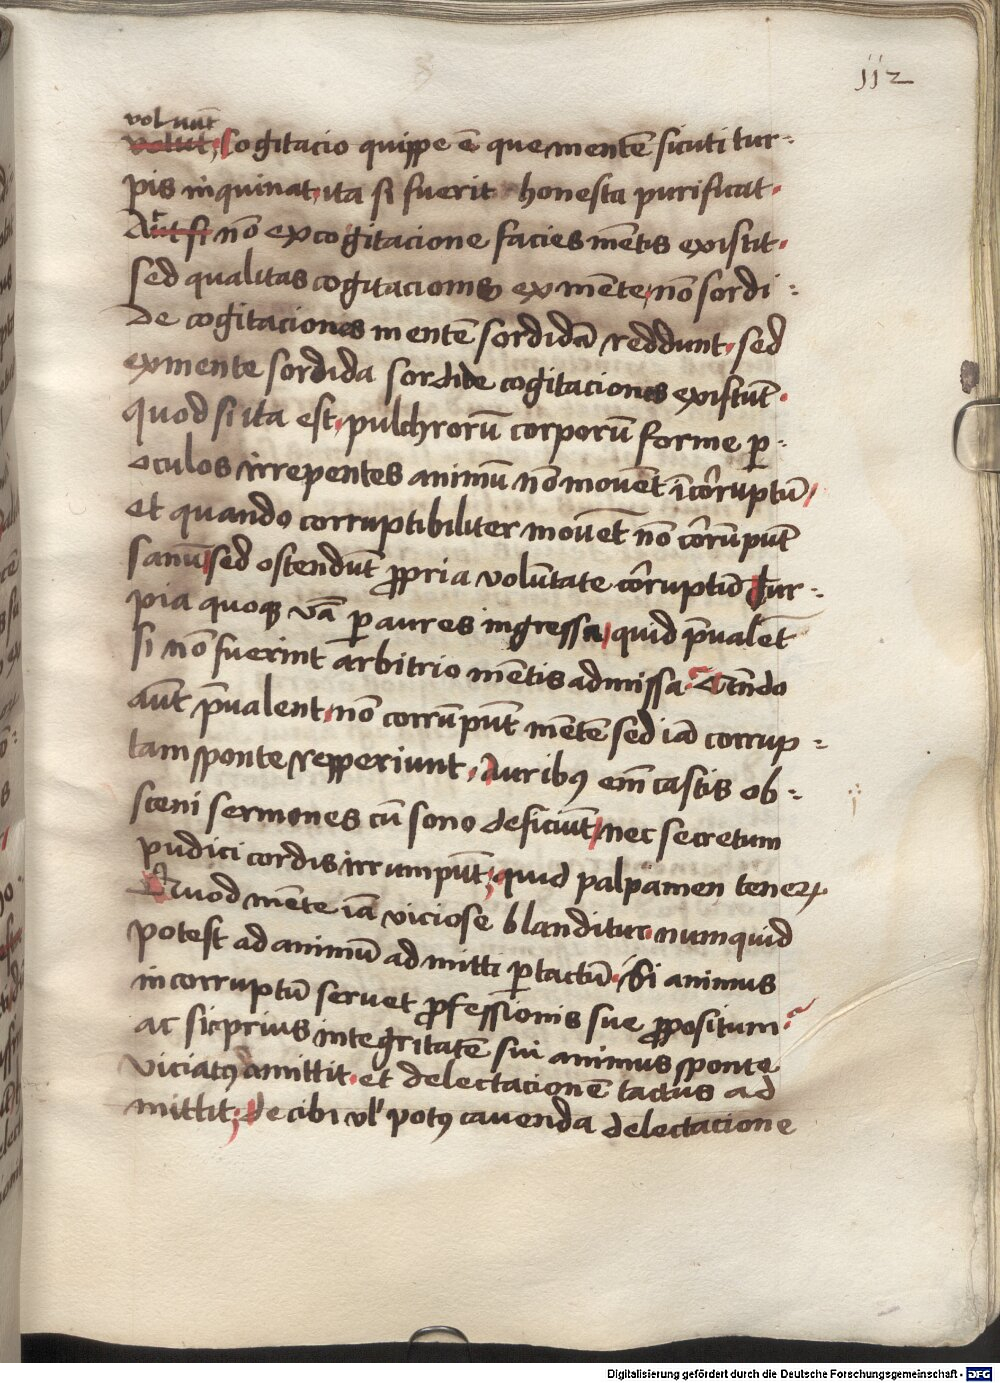 112
voluūt
volut; Cogitacio quippe ē que mentē sicuti tur-
pis inquinat, ita si fuerit honesta purificat.
nō ex cogitacione facies mētis existit.
sed qualitas cogitacionis ex mente, nō sordi-
de cogitaciones mentē sordidā reddunt. sed
ex mente sordida sordide cogitaciones existūt.
quod si ita est, pulchrorū corporū forme p̱
oculos irrepentes animū nō movēt īcorruptū,
et quando corruptibiliter movēt nō corrūpūt
sanū, sed ostendūt propria volūtate corruptū Tur-
pia quoque vā p̱ aures ingressa, quid p̄valēt
si nō fuerint arbitrio mētis admissa.
aūt p̄valent, nō corrūpūt mētē sed iā corrup-
tam sponte repperiunt. Auribꝰ em̄ castis ob-
sceni sermones cū sono deficiūt, nec secretum
pudici cordis irrumpūt; quid palpamen tenerꝝ
Quod mēte iā viciose blanditur. numquid
potest ad animū admitti p̱ tactū. Si animus
incorruptū servet professionis sue propositum.
ac si prius integritatē sui animus sponte
viciatꝰ amittit. et delectacionē tactus ad
mittit; De cibi vl potꝰ cavenda delectacione
Digitalisierung gefördert durch die Deutsche Forschungsgemeinschaft - DFG